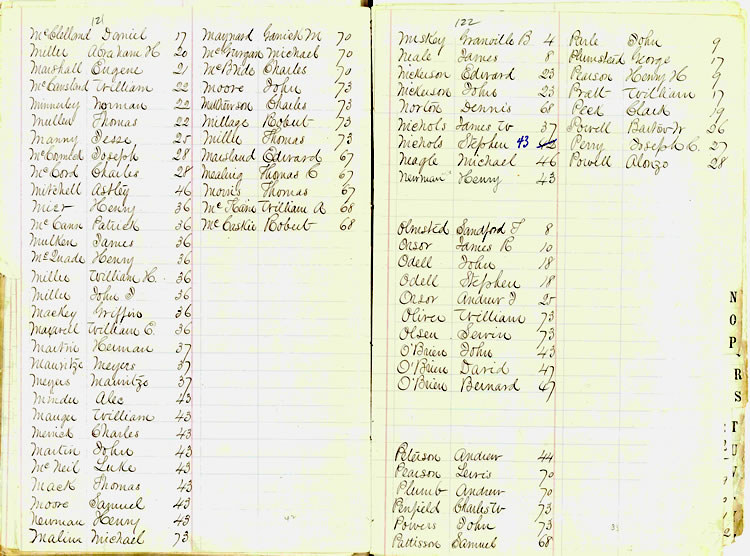 121
McClelland Daniel 17
Miller Abraham H 20
Marshall Eugene 21
McCausland William 22
Minnerly Norman 22
Muller Thomas 22
Manny Jesse 25
McCord Charles 28
Mitchell Astley 46
Mier Henry 36
McCann Patrick 36
Mulken James 36
McQuade Henry 36
Miller William H. 36
Miller John J 36
Mackey Griffin 36
Maxwell William E. 36
Martin Herman 37
Mauritzo Meyers 37
Meyers Mauritzo 37
Minder Alec 43
Mauger William 43
Merrick Charles 43
Martin John 43
McNeil Luke 43
Mack Thomas 43
Moore Samuel 43
Newman Henry 43
Malim Michael 73
Maynard Garrick M 70
McGurgan Michael 70
McBride Charles 70
Moore John 73
Charles 73
Millage Robert 73
Miller Thomas 73
Marsland Edward 67
Mealing Thomas C 67
Morris Thomas 67
William A 68
McCaskie Robert 68
122
Granville B 4
Neale James 8
Nickerson Edward 23
Nickerson John 23
Norton Dennis 68
Nichols James W 37
Nichols Stephen 43
Nagle Michael 46
Newman Henry 43
Olmsted Sandford T 8
Orsor James R 10
Odell John 18
Odell Stephen 18
Orsor Andrew J 25
Oliver William 73
Olsen 73
O'Brien John 43
O'Brien David 47
O'Brien Bernard 67
Peterson Andrew 44
Pearson Lewis 70
Plumb Andrew 70
Penfield Charles W 73
Powers John 73
Pattisson Samuel 68
Purle John 9
Plumsted George 17
Pearson Henry H 9
Pratt William 17
Peck Clark 19
Powell Barlow W 26
Perry Joseph C. 27
Powell Alonzo 28
N
O
P
R
S
T
U